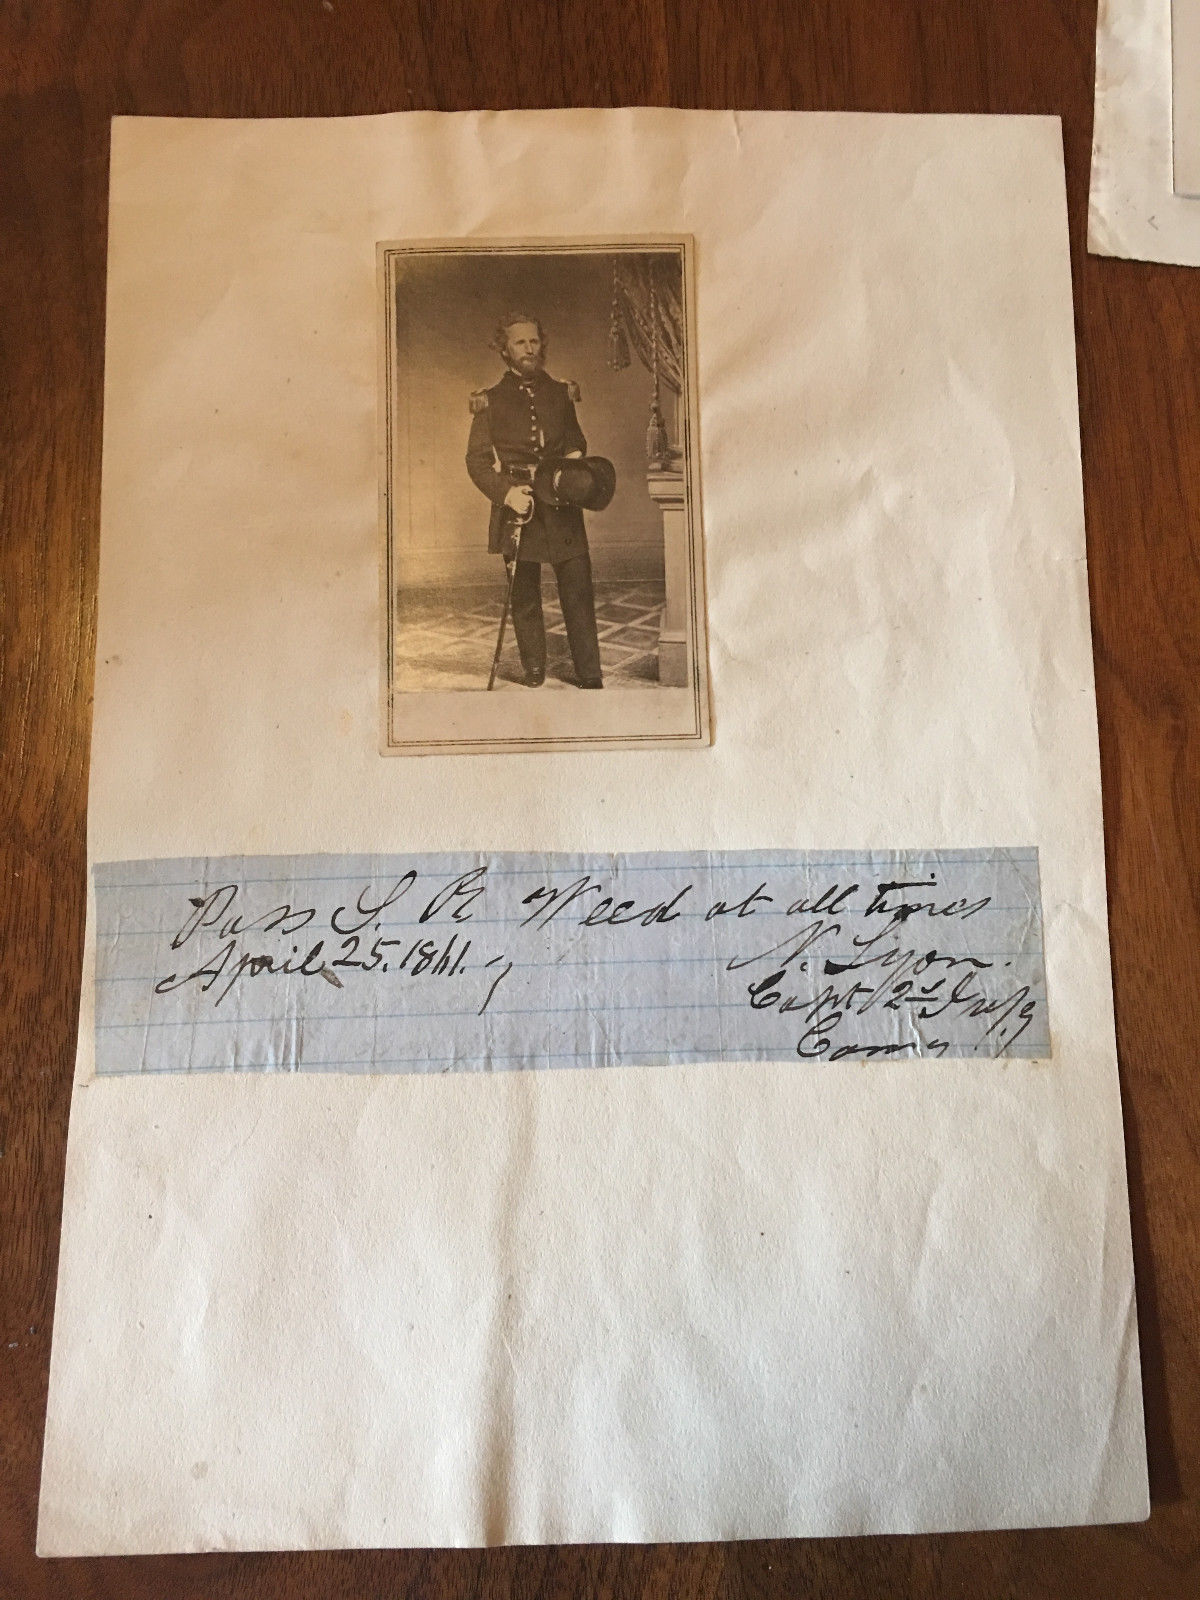 Pass S. R Weed at all times
April 25. 1861.
N. Lyon.
Capt 2d Infy
Comg